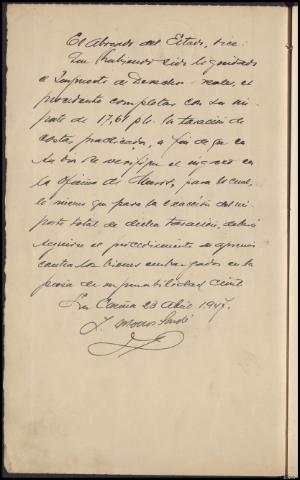 El Abogado del Estado, dice:
Que habiendo sido liquidado
el Impuesto de Derechos reales, es
procedente completar con su im-
porte de 17,61 pts. la tasación de
costas practicada, a fin de que en
su día se verifique el ingreso en
la Oficina de Hacienda, para lo cual,
lo mismo que para la exacción del im-
porte total de dicha tasación, deberá
seguirse el procedimiento de apremio
contra los bienes embargados en la
pieza de responsabilidad civil
La Coruña 23 Abril 1947.